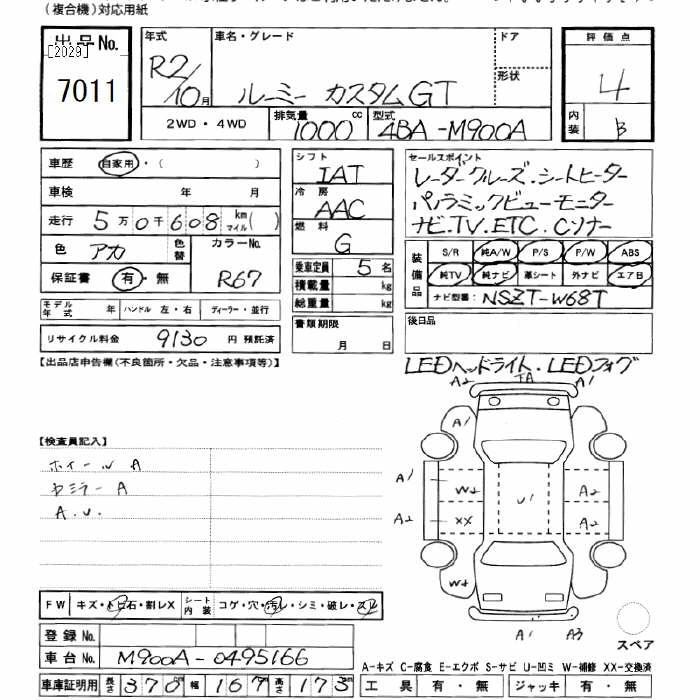 (複合機)対応用紙
出品No. [2029] 7011
年式 R2/10月
車名・グレード ルーミー カスタムGT
ドア
形状
評価点 4
内装 B
2WD・4WD
排気量 1000 cc
型式 4BA-M900A
車歴 自家用・( )
車検 年 月
走行 5万0千608 km マイル( )
色 アカ
色替
カラーNo. R67
保証書 有・無
シフト IAT
冷房 AAC
燃料 G
乗車定員 5名
積載量 kg
総重量 kg
セールスポイント
レーダークルーズ.シートヒーター
パノラミックビューモニター
ナビ.TV.ETC.Cソナー
装備品
S/R 純A/W P/S P/W ABS
純TV 純ナビ 革シート 外ナビ エアB
ナビ型番: NSZT-W68T
モデル年式 年 ハンドル 左・右 ディーラー・並行
リサイクル料金 9130 円 預託済
書類期限 月 日
後日品
【出品店申告欄(不良箇所・欠品・注意事項等)】
LEDヘッドライト.LEDフォグ
A2 TA A1
A1
A1 W2 U1 A2
A2 XX A2
W2
A1 A3
スペア
【検査員記入】
ホイールA
ミラーA
A.U.
FW キズ・トビ石・割レX
シート内装 コゲ・穴・汚レ・シミ・破レ・スレ
登録No.
車台No. M900A-0495166
車庫証明用 長さ 370cm 幅 167 高さ 173cm
A-キズ C-腐食 E-エクボ S-サビ U-凹ミ W-補修 XX-交換済
工具 有・無 ジャッキ 有・無